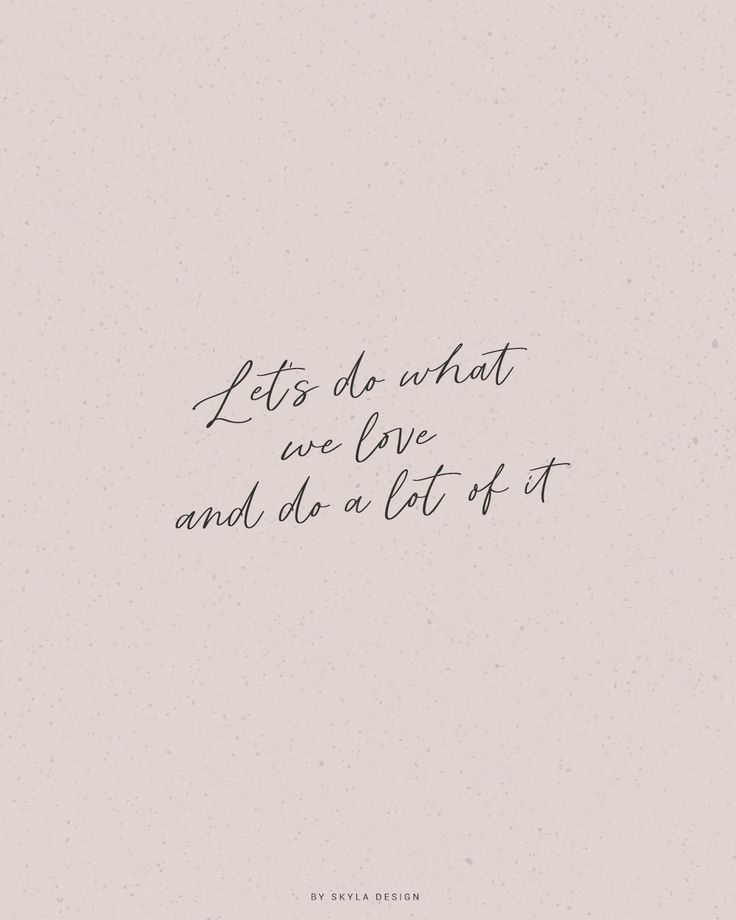 Let's do what
we love
and do a lot of it
BY SKYLA DESIGN